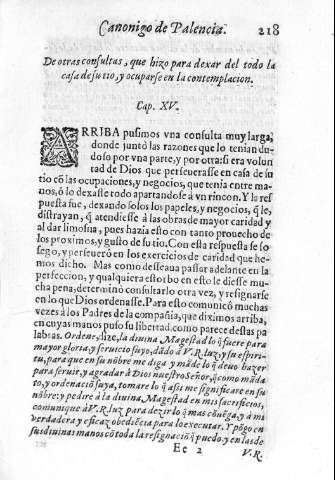 Canonigo de Palencia. 218
De otras consultas, que hizo para dexar del todo la
casa de su tio, y ocuparse en la contemplacion.
Cap. XV.
ARRIBA pusimos vna consulta muy larga,
donde juntò las razones que lo tenian du-
doso por vna parte, y por otra: si era volun
tad de Dios que perseuerasse en casa de su
tio cõ las ocupaciones, y negocios, que tenia entre ma-
nos, ò lo dexasse todo apartandose à vn rincon. Y la res
puesta fue, dexando solos los papeles, y negocios, q̃ le
distrayan, q̃ atendiesse à las obras de mayor caridad y
al dar limosna, pues hazia esto con tanto prouecho de
los proximos, y gusto de su tio. Con esta respuesta se so
sego, y perseuerò en los exercicios de caridad que he-
mos dicho. Mas como desseaua passar adelante en la
perfeccion, y qualquiera estorbo en esto le diesse mu-
cha pena, determinò consultarlo otra vez, y resignarse
en lo que Dios ordenasse. Para esto comunicò muchas
vezes à los Padres de la compañia, que diximos arriba,
en cuyas manos puso su libertad, como parece destas pa
labras. Ordene, dize, la diuina Magestad lo q̃ fuere para
mayor gloria, y seruicio suyo, dãdo à V.R. luz, y su espiri-
tu, para que en su nõbre me diga y mãde lo q̃ deuo hazer
para seruir, y agradar à Dios nuestro Señor, q̃ como mãda-
to, y ordenaciõ suya, tomare lo q̃ assi me significare en su
nõbre: y pedire à la diuina Magestad en mis sacrificios,
comunique à V.R. luz para dezir lo q̃ mas cõuẽga, y à mi
verdadera y eficaz obediẽcia para lo executar. Y põgo en
sus diuinas manos cõ toda la resignaciõ q̃ puedo, y en las de
Ee 2 V.R.